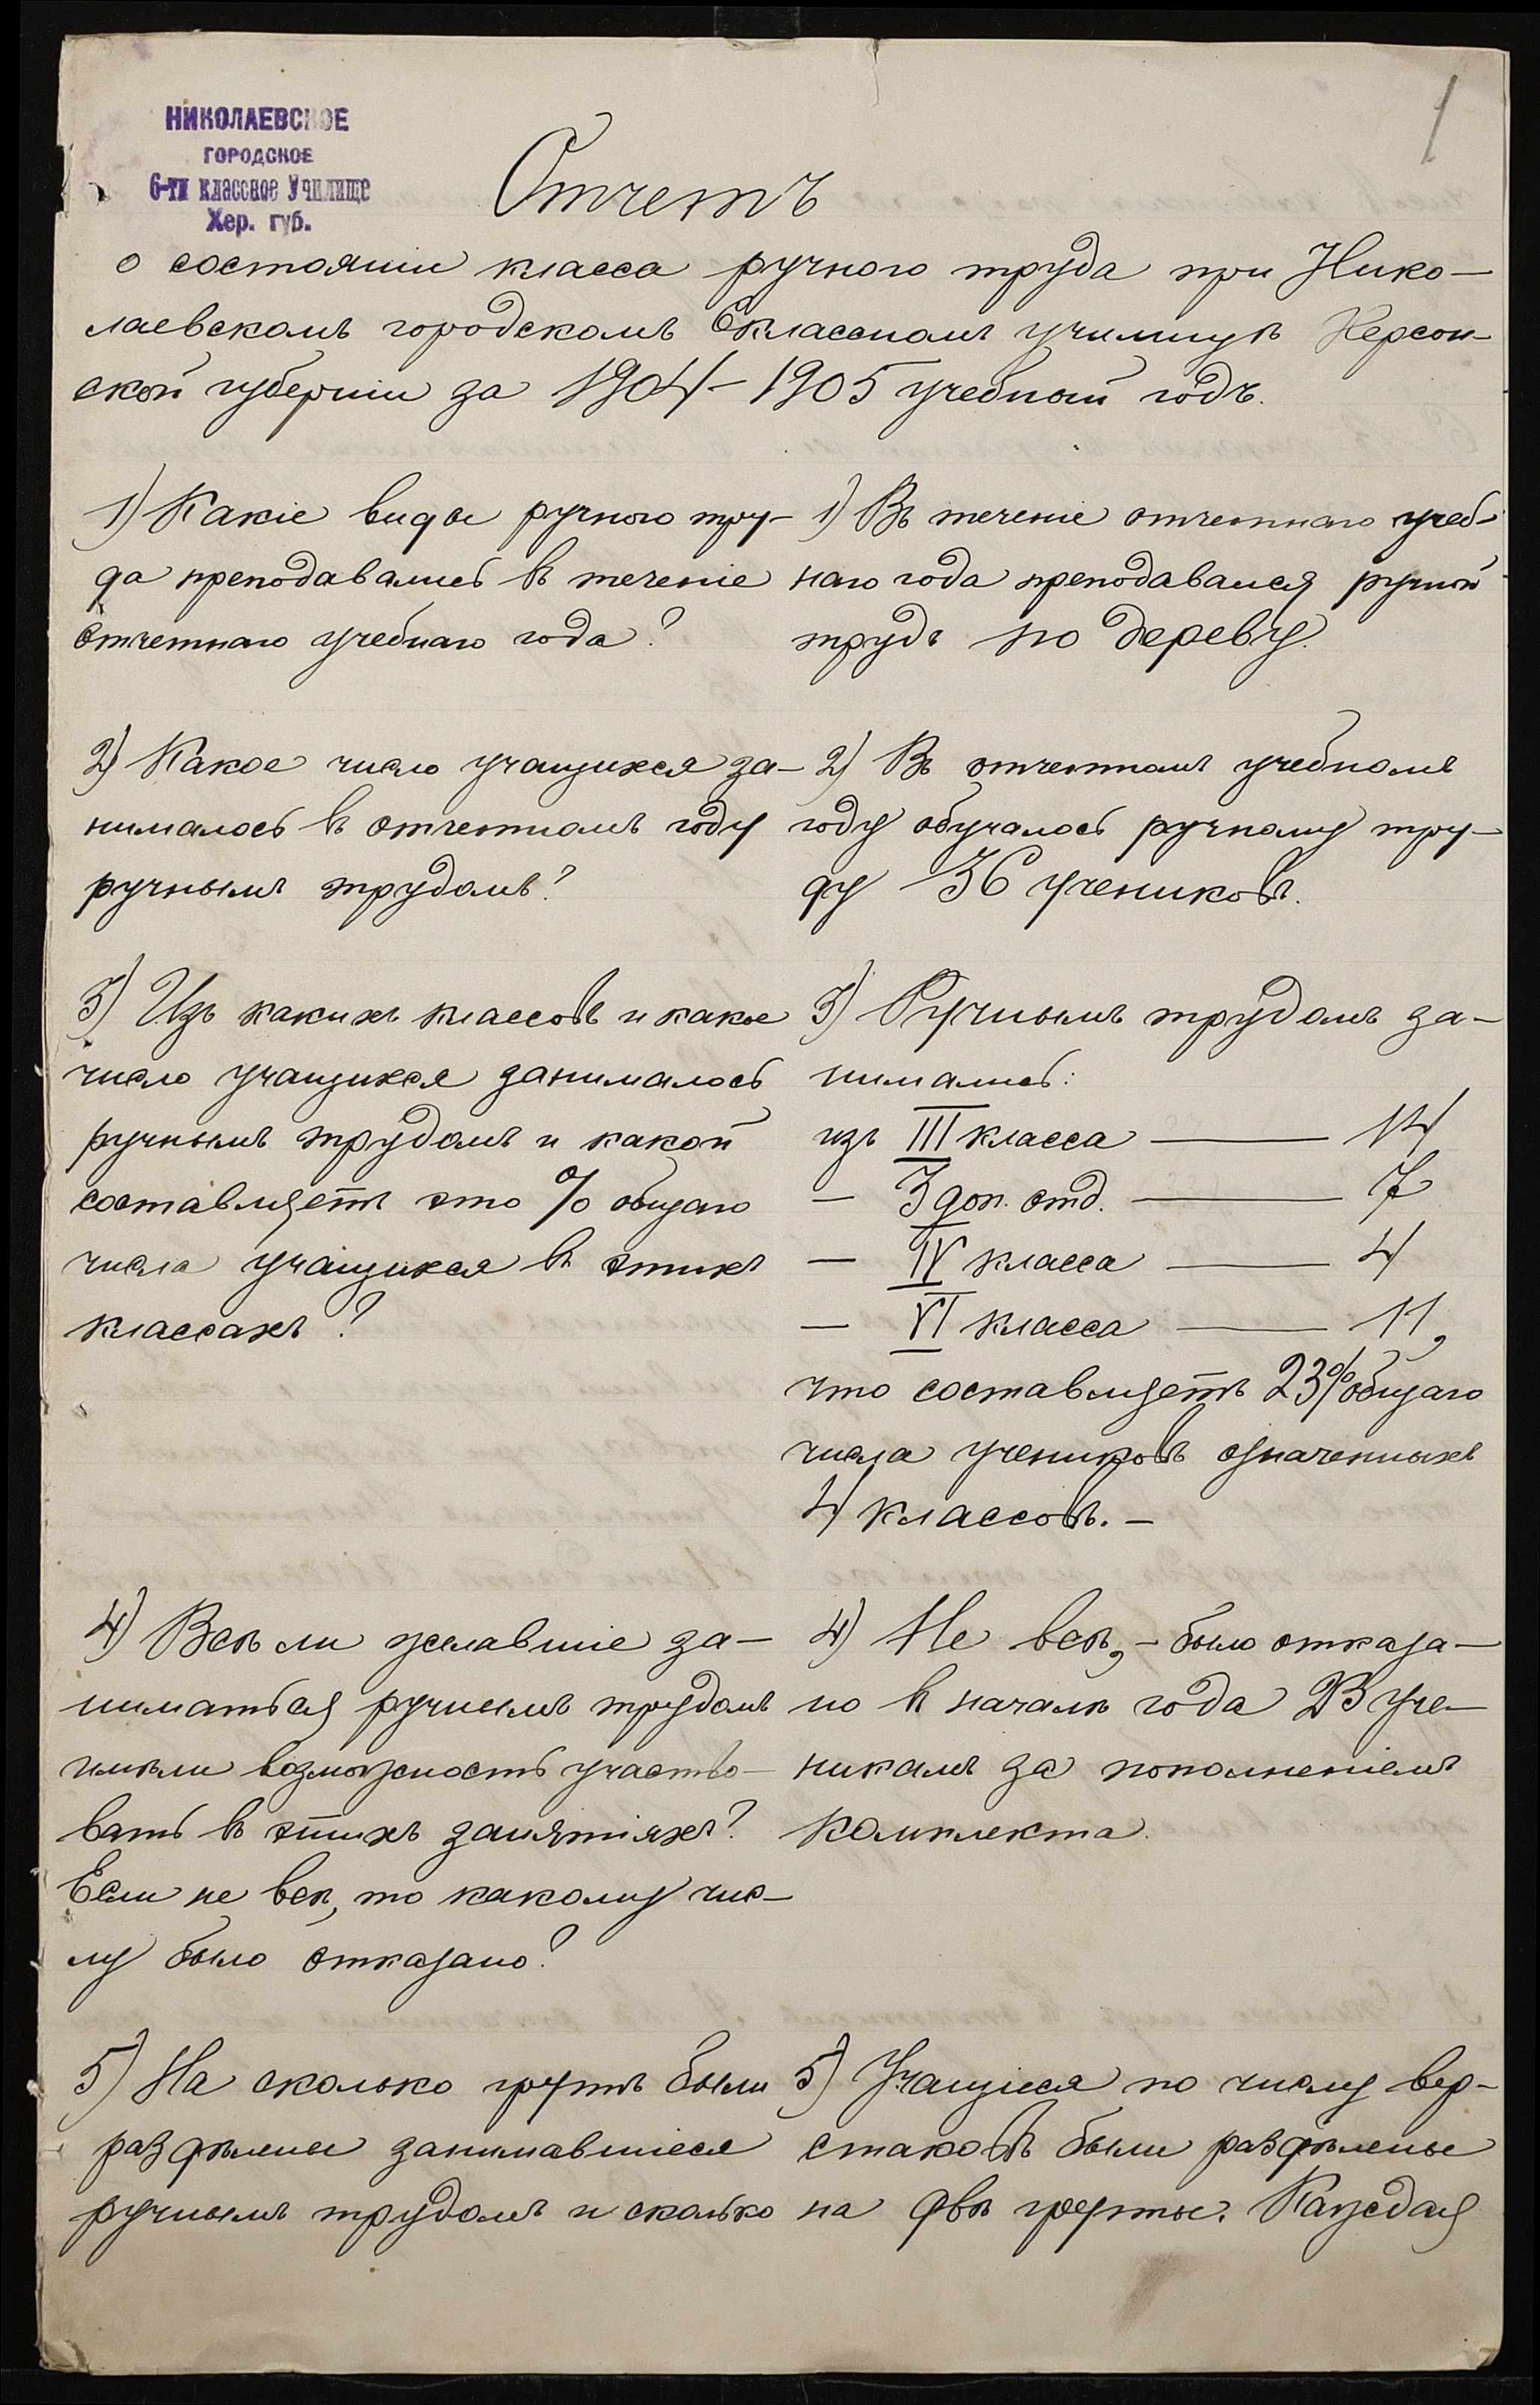 1
НИКОЛАЕВСКОЕ
ГОРОДСКОЕ
6-ти классное Училище
Хер. губ.
Отчетъ
о состояніи класса ручного труда при Нико-
лаевскомъ городскомъ 6классномъ училищѣ Херсон-
ской губерніи за 1904-1905 учебный годъ.
1) Какіе виды ручного тру-
да преподавались въ теченіе
отчетнаго учебнаго года?
1) Въ теченіе отчетнаго учеб-
наго года преподавался ручной
трудъ по дереву.
2) Какое число учащихся за-
нималось въ отчетномъ году
ручнымъ трудомъ?
2) Въ отчетномъ учебномъ
году обучалось ручному тру-
ду 36 учениковъ.
3) Изъ какихъ классовъ и какое
число учащихся занималось
ручнымъ трудомъ и какой
составляетъ это % общаго
числа учащихся въ этихъ
классахъ?
3) Ручнымъ трудомъ за-
нимались:
изъ III класса — 14
— 3 доп. отд. — 7
— IV класса — 4
— VI класса — 11,
что составляетъ 23% общаго
числа учениковъ означенныхъ
4 классовъ. -
4) Всѣ ли желавшіе за-
ниматься ручнымъ трудомъ
имѣли возможность участво-
вать въ этихъ занятіяхъ?
Если не всѣ, то какому чис-
лу было отказано?
4) Не всѣ, - было отказа-
но въ началѣ года 23 уче-
никамъ за пополненіемъ
комплекта.
5) На сколько группъ были
раздѣлены занимавшіеся
ручнымъ трудомъ и сколько
5) Учащіеся по числу вер-
стаковъ были раздѣлены
на двѣ группы. Каждая